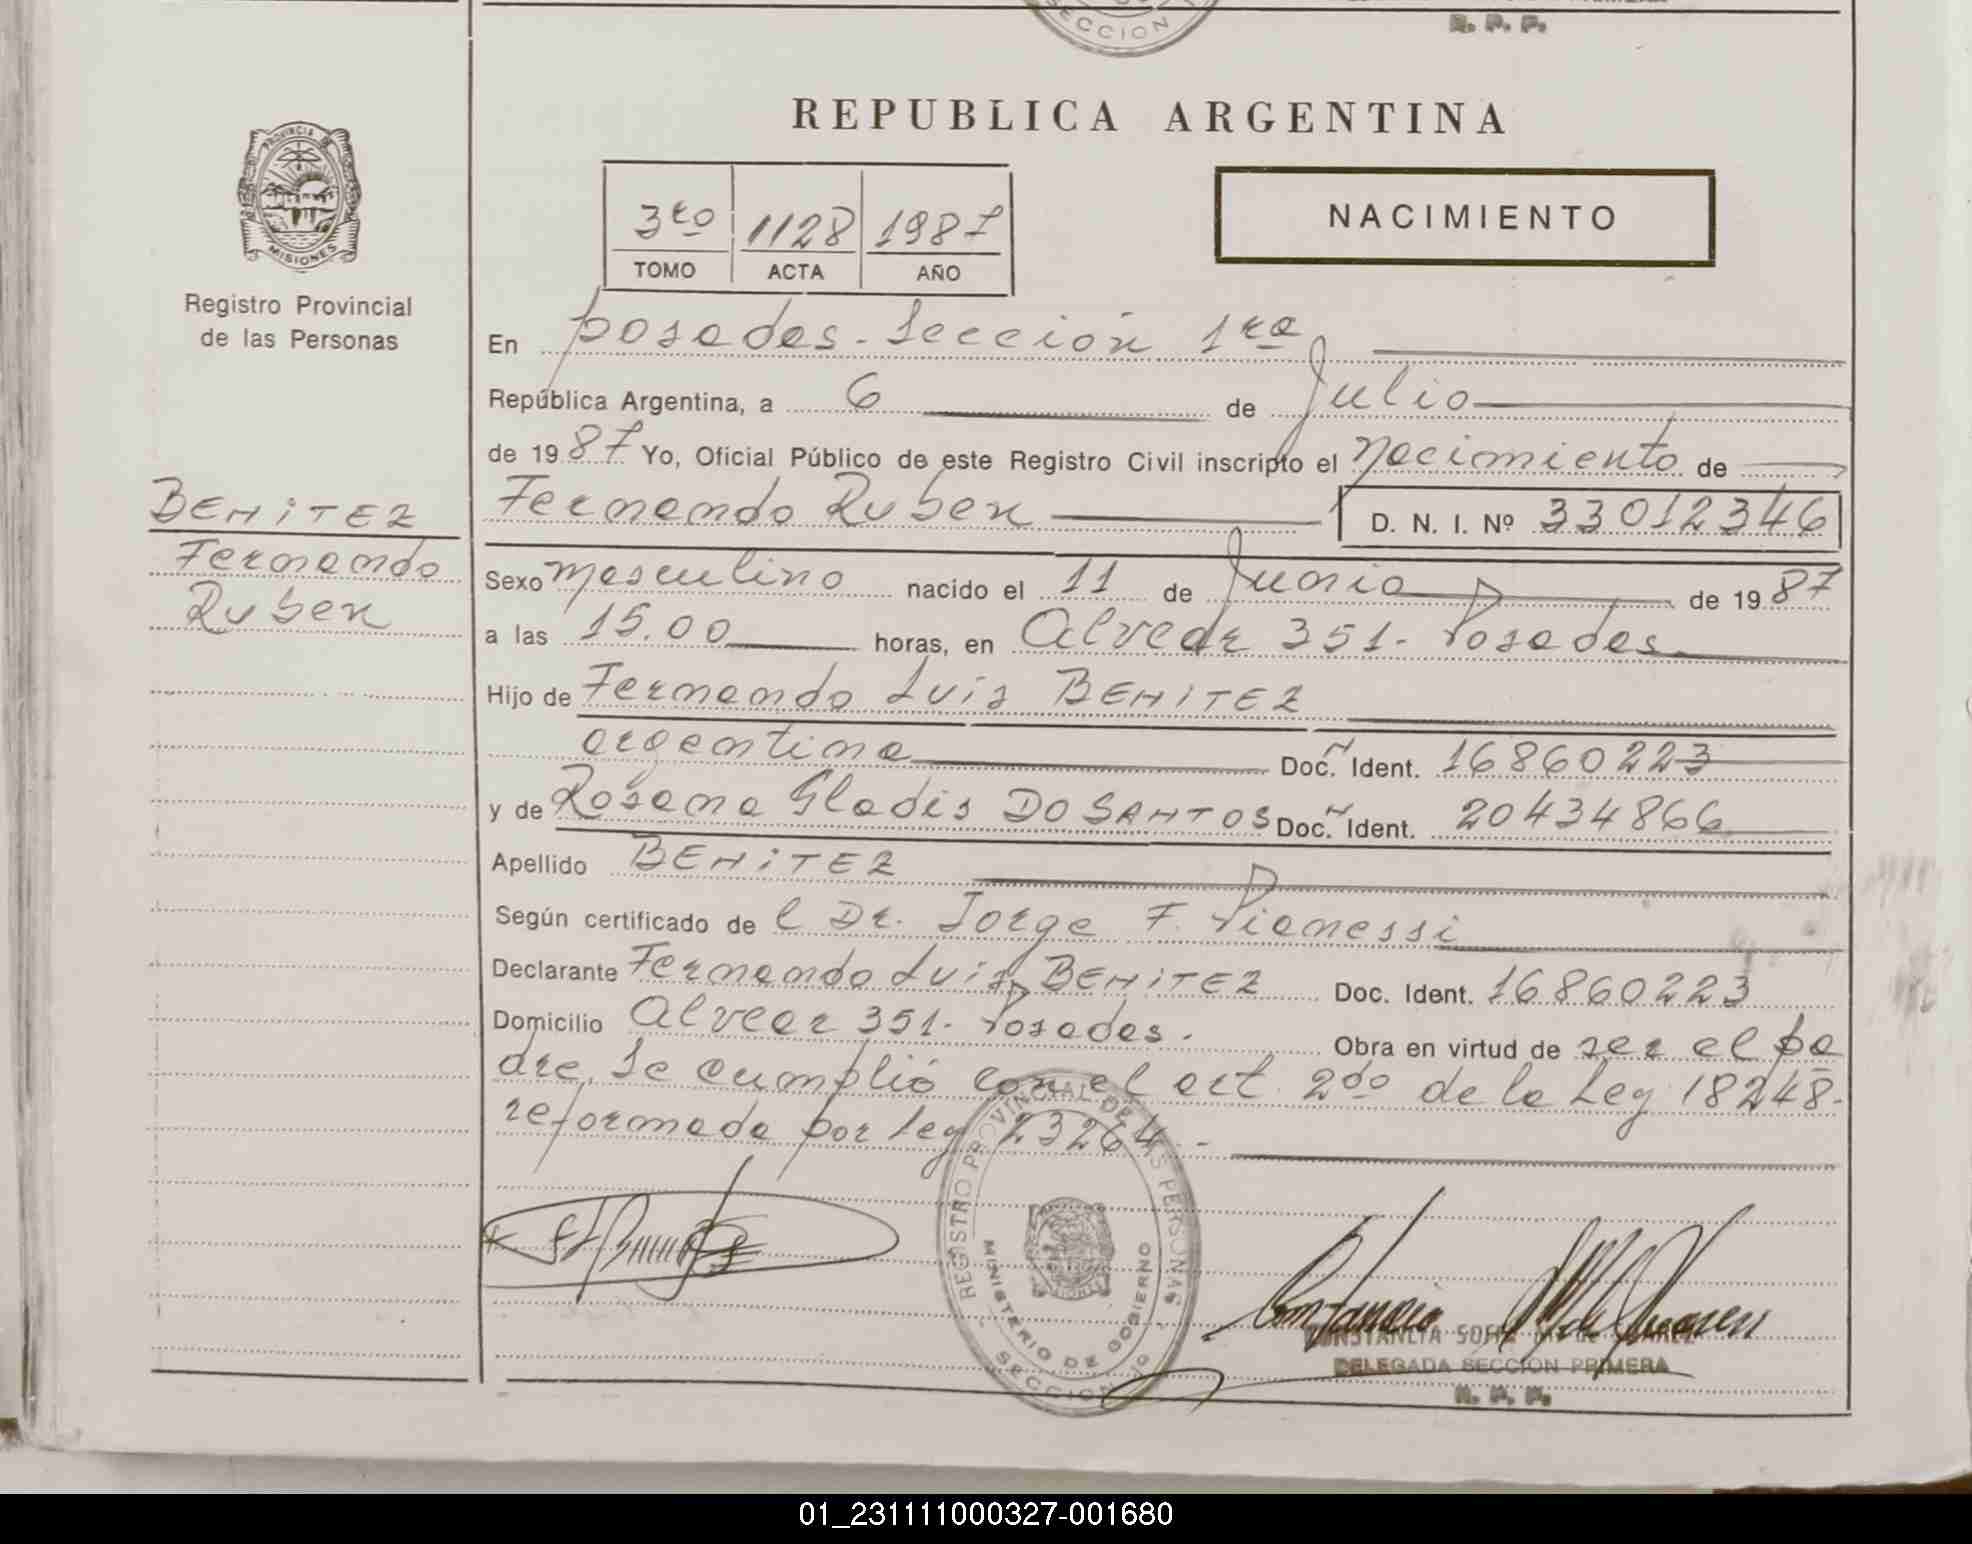 SECCION 1
R. P. P.
REPUBLICA ARGENTINA
PROVINCIA DE
MISIONES
Registro Provincial
de las Personas
3ro 1128 1987
TOMO ACTA AÑO
NACIMIENTO
En posadas - Sección 1ra
República Argentina, a 6 de Julio
de 1987 Yo, Oficial Público de este Registro Civil inscripto el nacimiento de
BENiTEZ
Fernando
Ruben
Fernando Ruben D. N. I. Nº 33012346
Sexo masculino nacido el 11 de Junio de 1987
a las 15.00 horas, en Alvear 351- Posadas
Hijo de Fernando Luis BENITEZ
argentina Doc. Ident. 16860223
y de Rosana Gladis DO SANTOS Doc. Ident. 20434866
Apellido BENiTEZ
Según certificado de l Dr. Jorge F. Pianessi
Declarante Fernando Luis BENiTEZ Doc. Ident. 16860223
Domicilio Alvear 351- Posadas. Obra en virtud de ser el pa
dre. Se cumplió con el art 2do de la Ley 18248-
reformada por Ley 23264 -
REGISTRO PROVINCIAL DE LAS PERSONAS
MINISTERIO DE GOBIERNO
SECCION 1º
CONSTANCIA SOFIA
DELEGADA SECCION PRIMERA
R. P. P.
01_231111000327-001680